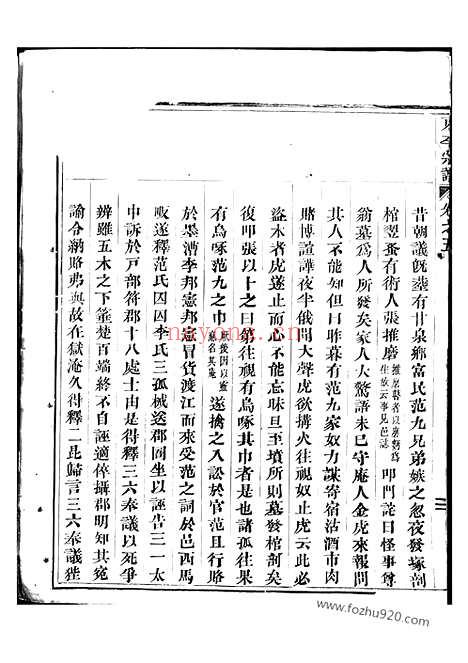 昔朝議旣葬有甘泉鄉富民范九兄弟嫉之忽夜發塚剖
棺蹤蚤有術人張推磨推磨瞽者以磨麪爲生故云事見邑誌叩門詫曰怪事尊
翁墓爲人所發矣家人大驚語未已守庵人金虎來報問
其人不能知但曰昨暮有范九家奴力謀寄宿沽酒市肉
賭博諠譁夜半俄聞大聲虎欲搆火往視奴止虎云此必
盜木者虎遂止而心不能忘昧旦至墳所則墓發棺剖矣
復叩張以卜之曰第往視有烏啄其巾者是也諸孤往果
有烏啄范九之巾後因以名其庵遂擒之入訟於官范且行賂
於墨漕李邦憲邦憲冒貨渡江而來受范之詞於邑西馬
遂釋范氏囚李氏三孤械送郡囹坐以誣告三一太
中訴於戶部符郡十八處士由是得釋三六奉議以死爭
辨雖五木之下箠楚百端終不自誣適倅攝郡明知其寃
諭令納賂弗與故在獄淹久得釋二昆歸言三六奉議徃
nayona.cn
www.fozhu920.com